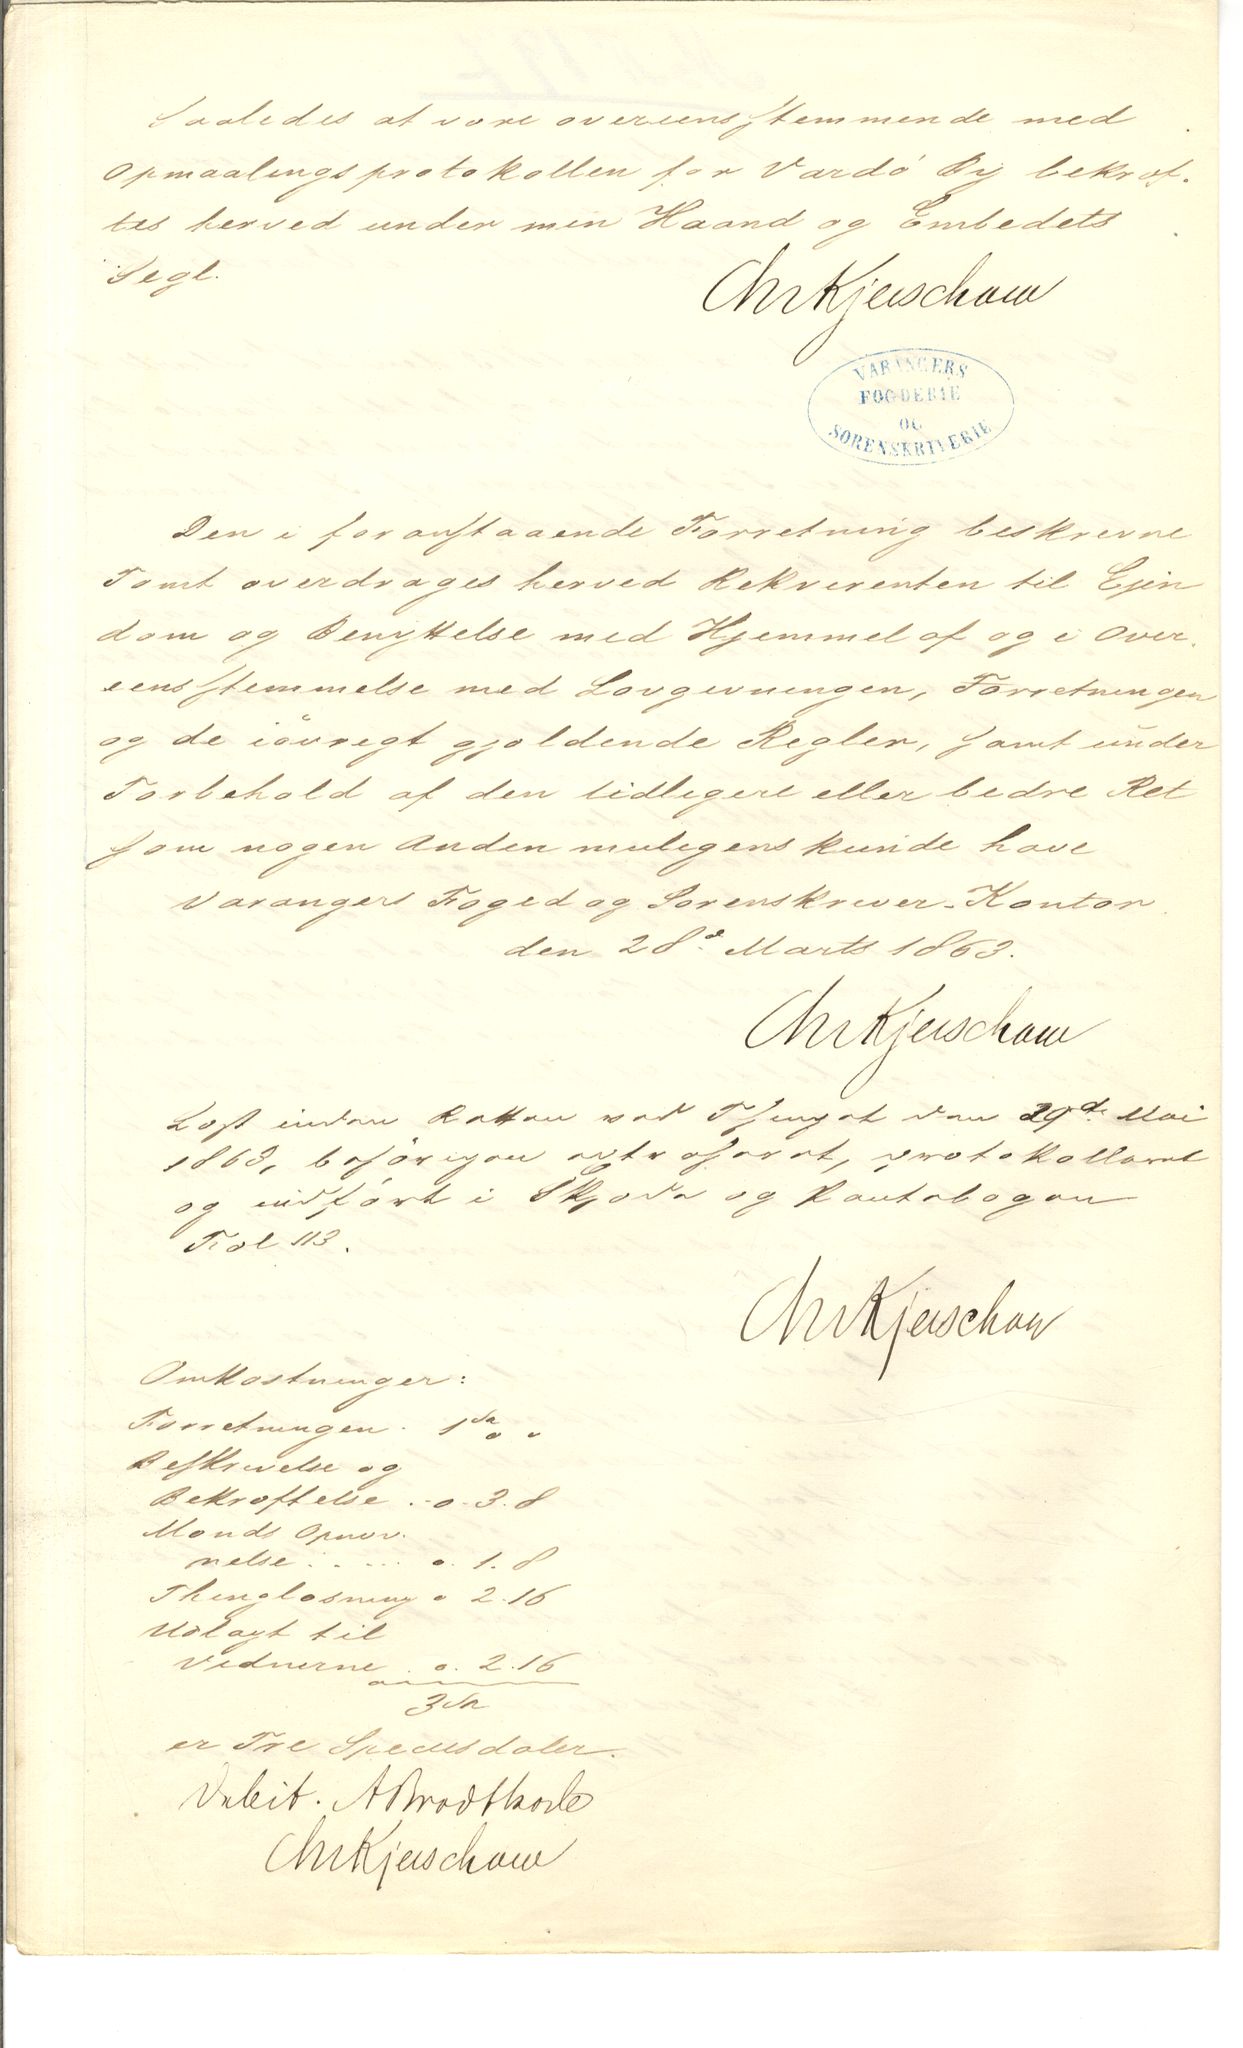 Saaledes at være overeensstemmende med
Opmaalingsprotokollen for Vardö By bekræf-
tes herved under min Haand og Embedets
Segl.
Chr Kjerschow
VARANGERS
FOGDERIE
OG
SORENSKRIVERIE
Den i foranstaaende Forretning beskrevne
Tomt overdrages herved Rekvirenten til Ejen
dom og Benyttelse med Hjemmel af og i Over-
eensstemmelse med Lovgivningen, Forretningen
og de iövrigt gjældende Regler, samt under
Forbehold af den tidligere eller bedre Ret
som nogen Anden muligens kunde have
Varangers Foged og Sorenskriver-Kontor
den 28d Marts 1863.
Chr Kjerschow
Læst inden Retten ved Thinget den 29de Mai
1863, behörigen extraheret, protokolleret
og indfört i Skjøde og Pantebogen
Fol 113.
Chr Kjerschow
Omkostninger:
Forretningen. 1 Sp " "
Beskrivelse og
Bekræftelse . - " - 3. 8
Mænds Opnæv-
nelse . . . . . " . 1. 8
Thinglæsning " 2. 16
Udlagt til
Vidnerne . " . 2. 16
3 Sp
er Tre Speciesdaler.
Debit. A Brodtkorb
Chr Kjerschow